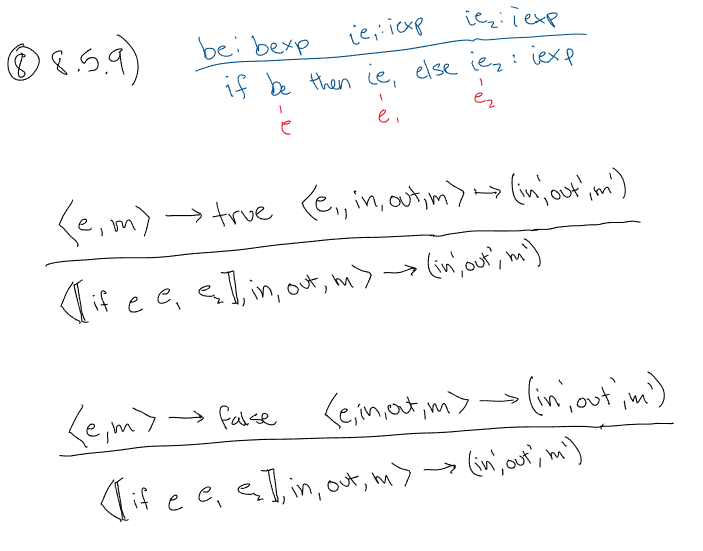 ⑧ 8.5.9)
be: bexp ie₁: iexp ie₂: iexp
if be then ie₁ else ie₂ : iexp
e e₁ e₂
⟨e, m⟩ → true ⟨e₁, in, out, m⟩ → (in', out', m')
⟨⟦if e e₁ e₂⟧, in, out, m⟩ → (in', out', m')
⟨e, m⟩ → false ⟨e, in, out, m⟩ → (in', out', m')
⟨⟦if e e₁ e₂⟧, in, out, m⟩ → (in', out', m')